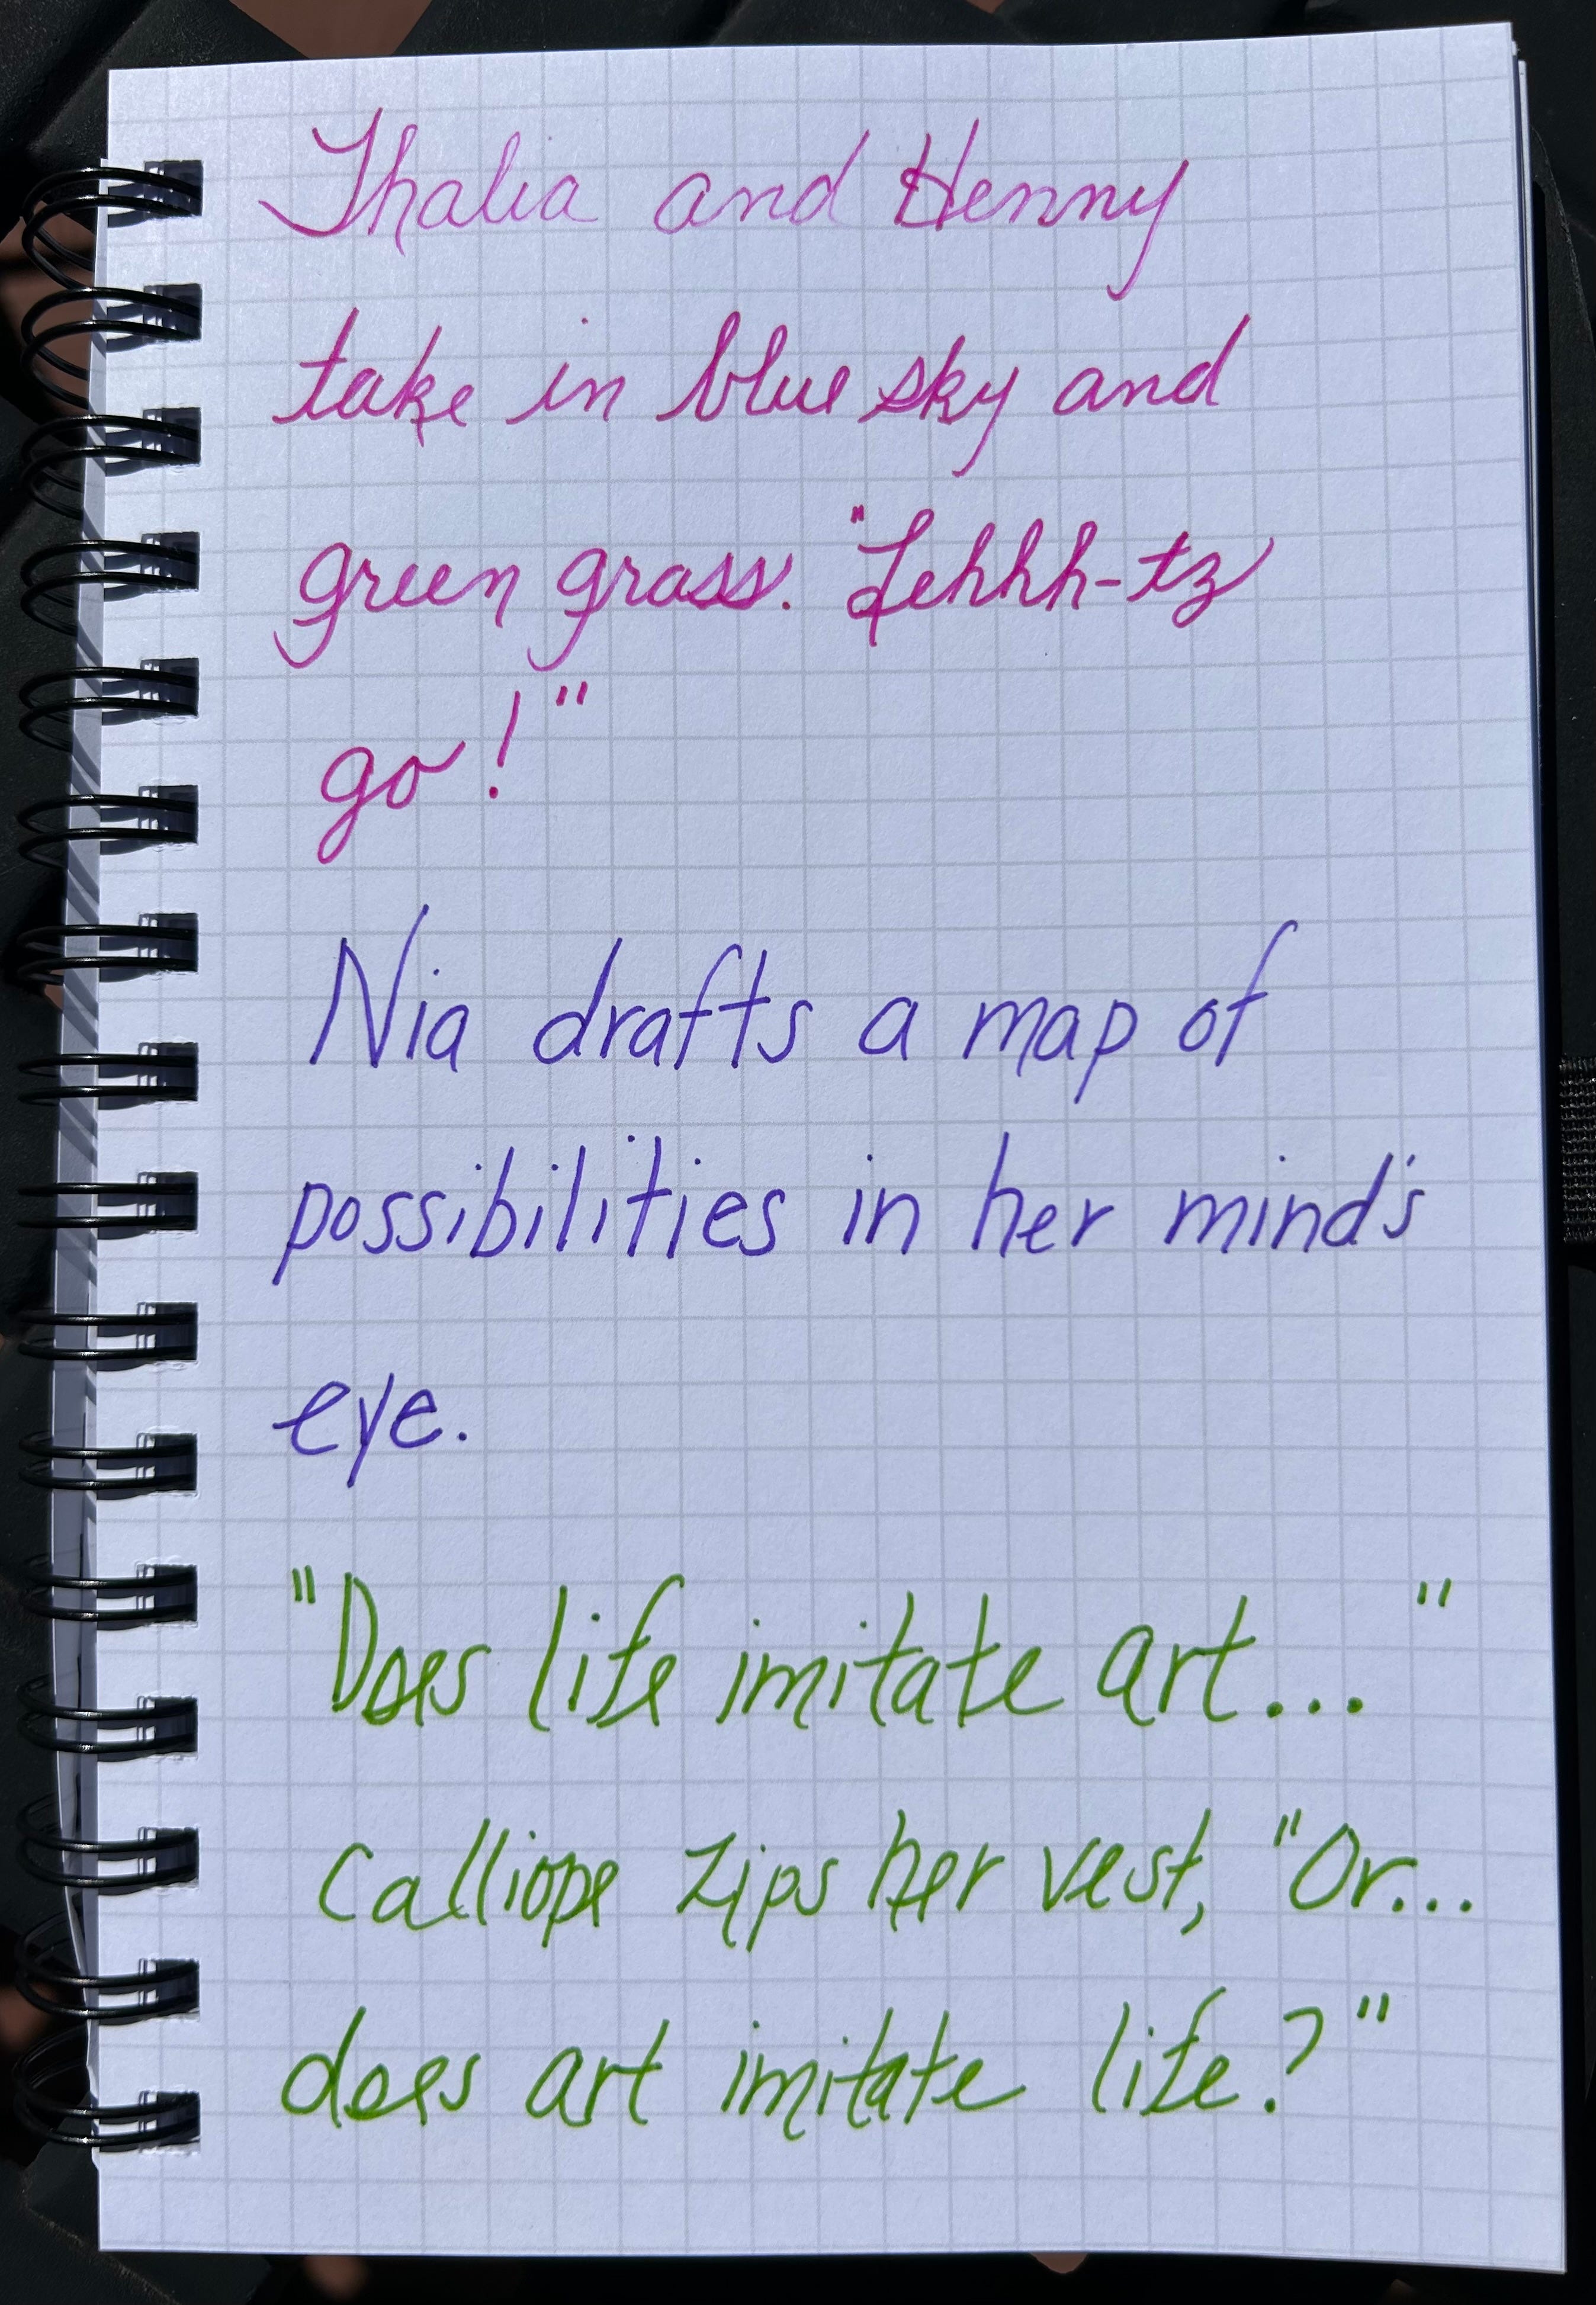 Thalia and Henny
take in blue sky and
green grass. "Lehhh-tz
go!"
Nia drafts a map of
possibilities in her mind's
eye.
"Does life imitate art..."
Calliope zips her vest, "Or...
does art imitate life?"